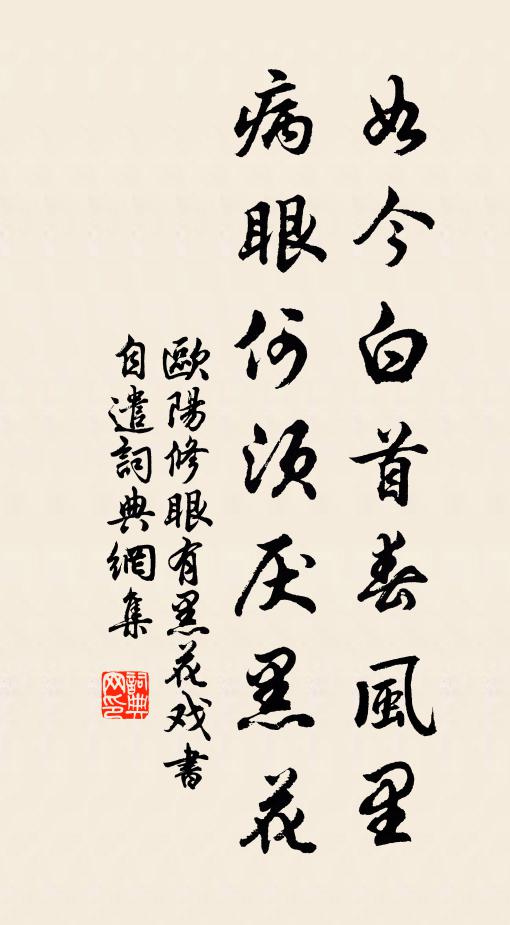 如今白首春風里
病眼何須厌黑花
歐陽修眼有黑花戏書
自遣詞典網集
詞典
网印